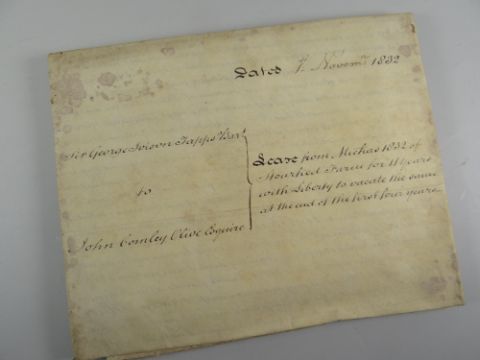 Dated 1st Novemr 1832
Sir George Ivison Tapps Bart
to
John Comley Olive Esquire
Lease from Michas 1832 of
Farm for 11 years
with Liberty to vacate the same
at the end of the first four years